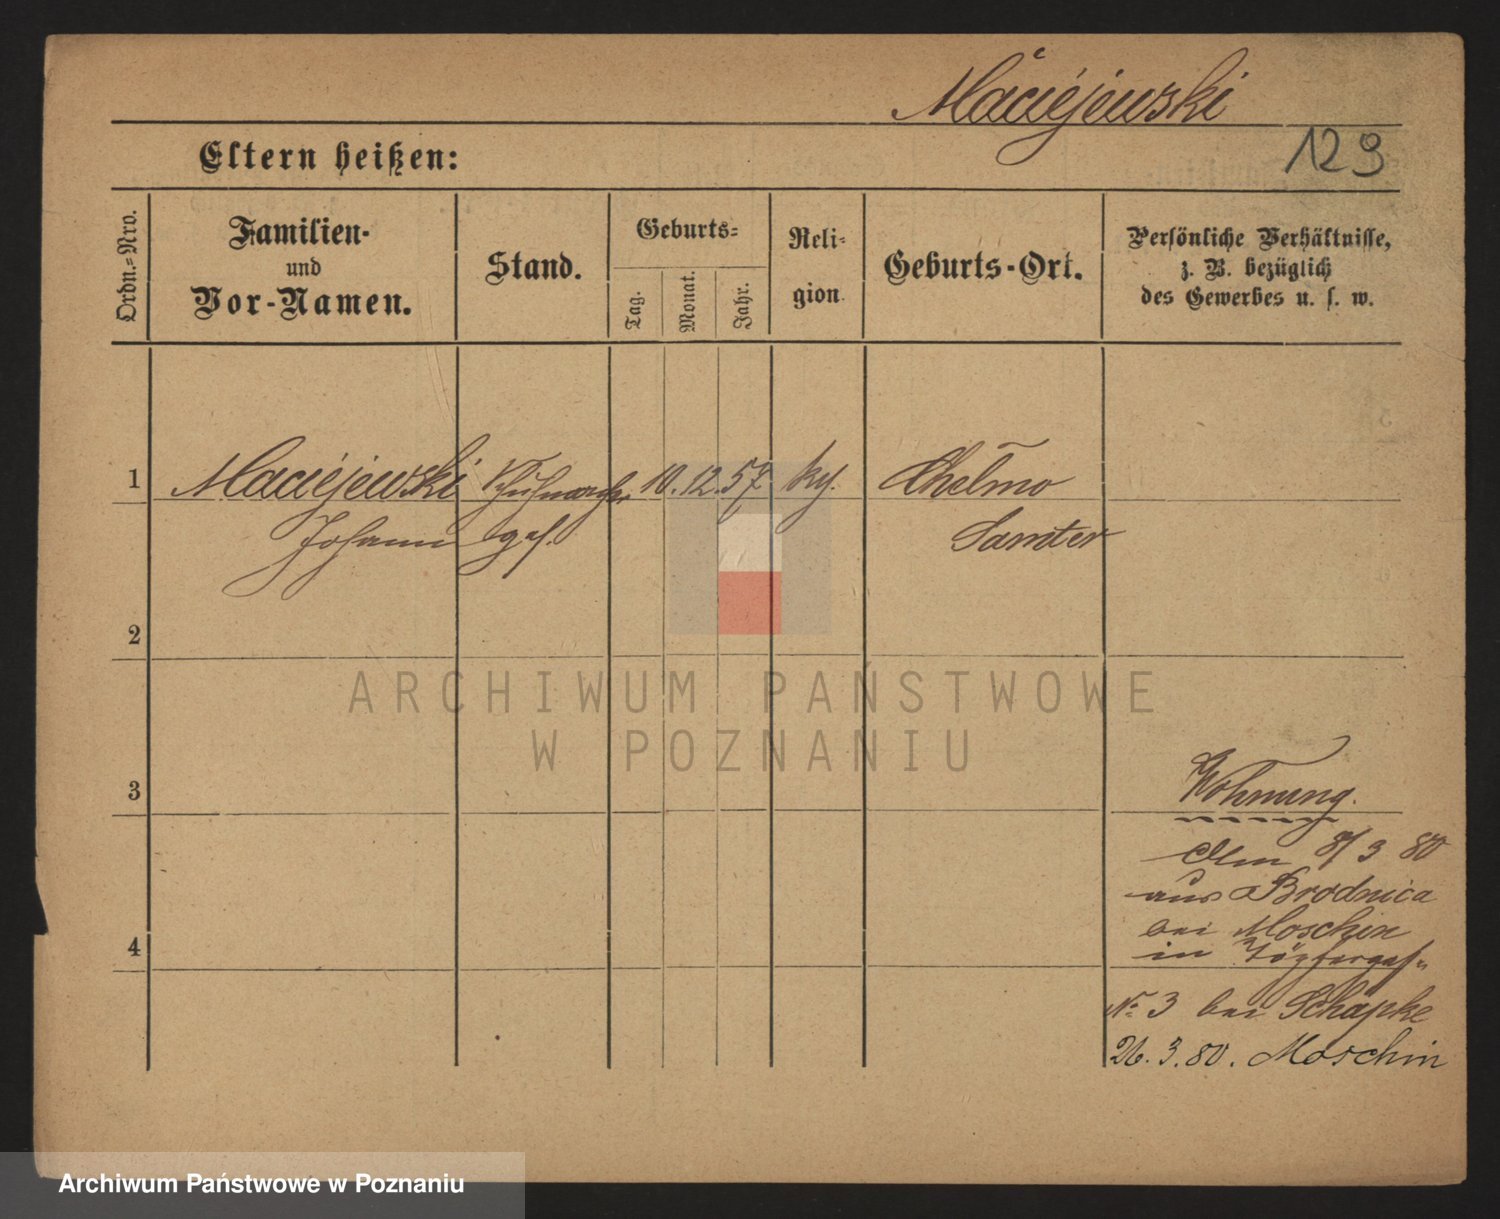 Maciejewski
129
Eltern heißen:
Ordn.=Nro.
Familien-
und
Vor-Namen.
Stand.
Geburts=
Tag.
Monat.
Jahr.
Reli=
gion
Geburts-Ort.
Persönliche Verhältnisse,
z. B. bezüglich
des Gewerbes u. s. w.
1 Maciejewski Schuhmacher 10. 12. 57 kth. Chelmo
Johann ges. Samter
2
3
4
Wohnung.
Am 8/3 80
aus Brodnica
bei Moschin
in Töpfergas=
No 3 bei Schäpke
26. 3. 80. Moschin
ARCHIWUM PAŃSTWOWE
W POZNANIU
Archiwum Państwowe w Poznaniu